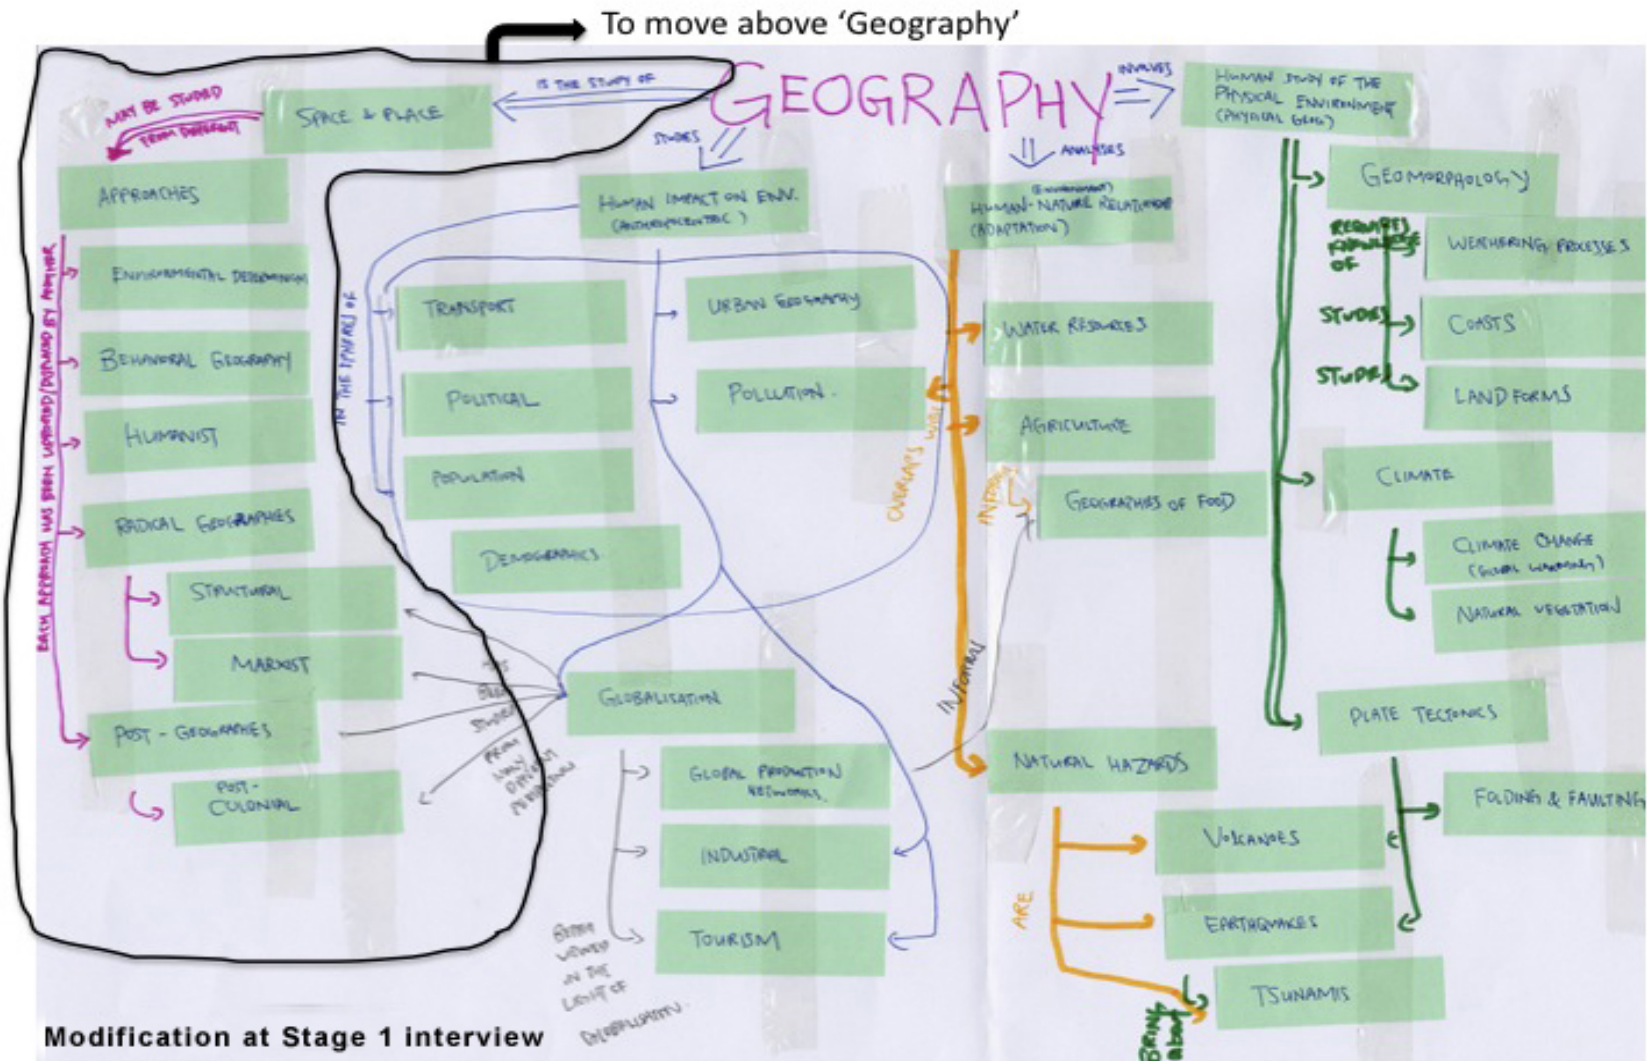 To move above ‘Geography’
GEOGRAPHY
IS THE STUDY OF
SPACE & PLACE
MAY BE STUDIED
FROM DIFFERENT
APPROACHES
EACH APPROACH HAS BEEN
BY AUTHOR
ENVIRONMENTAL DETERMINISM
BEHAVIORAL GEOGRAPHY
HUMANIST
RADICAL GEOGRAPHIES
STRUCTURAL
MARXIST
POST-GEOGRAPHIES
POST-
COLONIAL
STUDIES
HUMAN IMPACT ON ENV.
(ANTHROPOCENTRIC)
IN THE SPHERES OF
TRANSPORT
POLITICAL
POPULATION
DEMOGRAPHICS
URBAN GEOGRAPHY
POLLUTION.
GLOBALISATION
HAS
BEEN
STUDIED
FROM
MANY
DIFFERENT
GLOBAL PRODUCTION
NETWORKS.
INDUSTRIAL
TOURISM
BETTER
VIEWED
IN THE
LIGHT OF
GLOBALISATION.
ANALYSES
(ENVIRONMENT)
HUMAN-NATURE RELATIONSHIP
(ADAPTATION)
WATER RESOURCES
OVERLAPS WITH
AGRICULTURE
INFORMS
GEOGRAPHIES OF FOOD
INFORMS
NATURAL HAZARDS
ARE
VOLCANOES
EARTHQUAKES
TSUNAMIS
BRING
ABOUT
INVOLVES
HUMAN STUDY OF THE
PHYSICAL ENVIRONMENT
(PHYSICAL GEOG)
GEOMORPHOLOGY
REQUIRES
KNOWLEDGE
OF
WEATHERING PROCESSES
STUDIES
COASTS
STUDIES
LANDFORMS
CLIMATE
CLIMATE CHANGE
(GLOBAL WARMING)
NATURAL VEGETATION
PLATE TECTONICS
FOLDING & FAULTING
Modification at Stage 1 interview